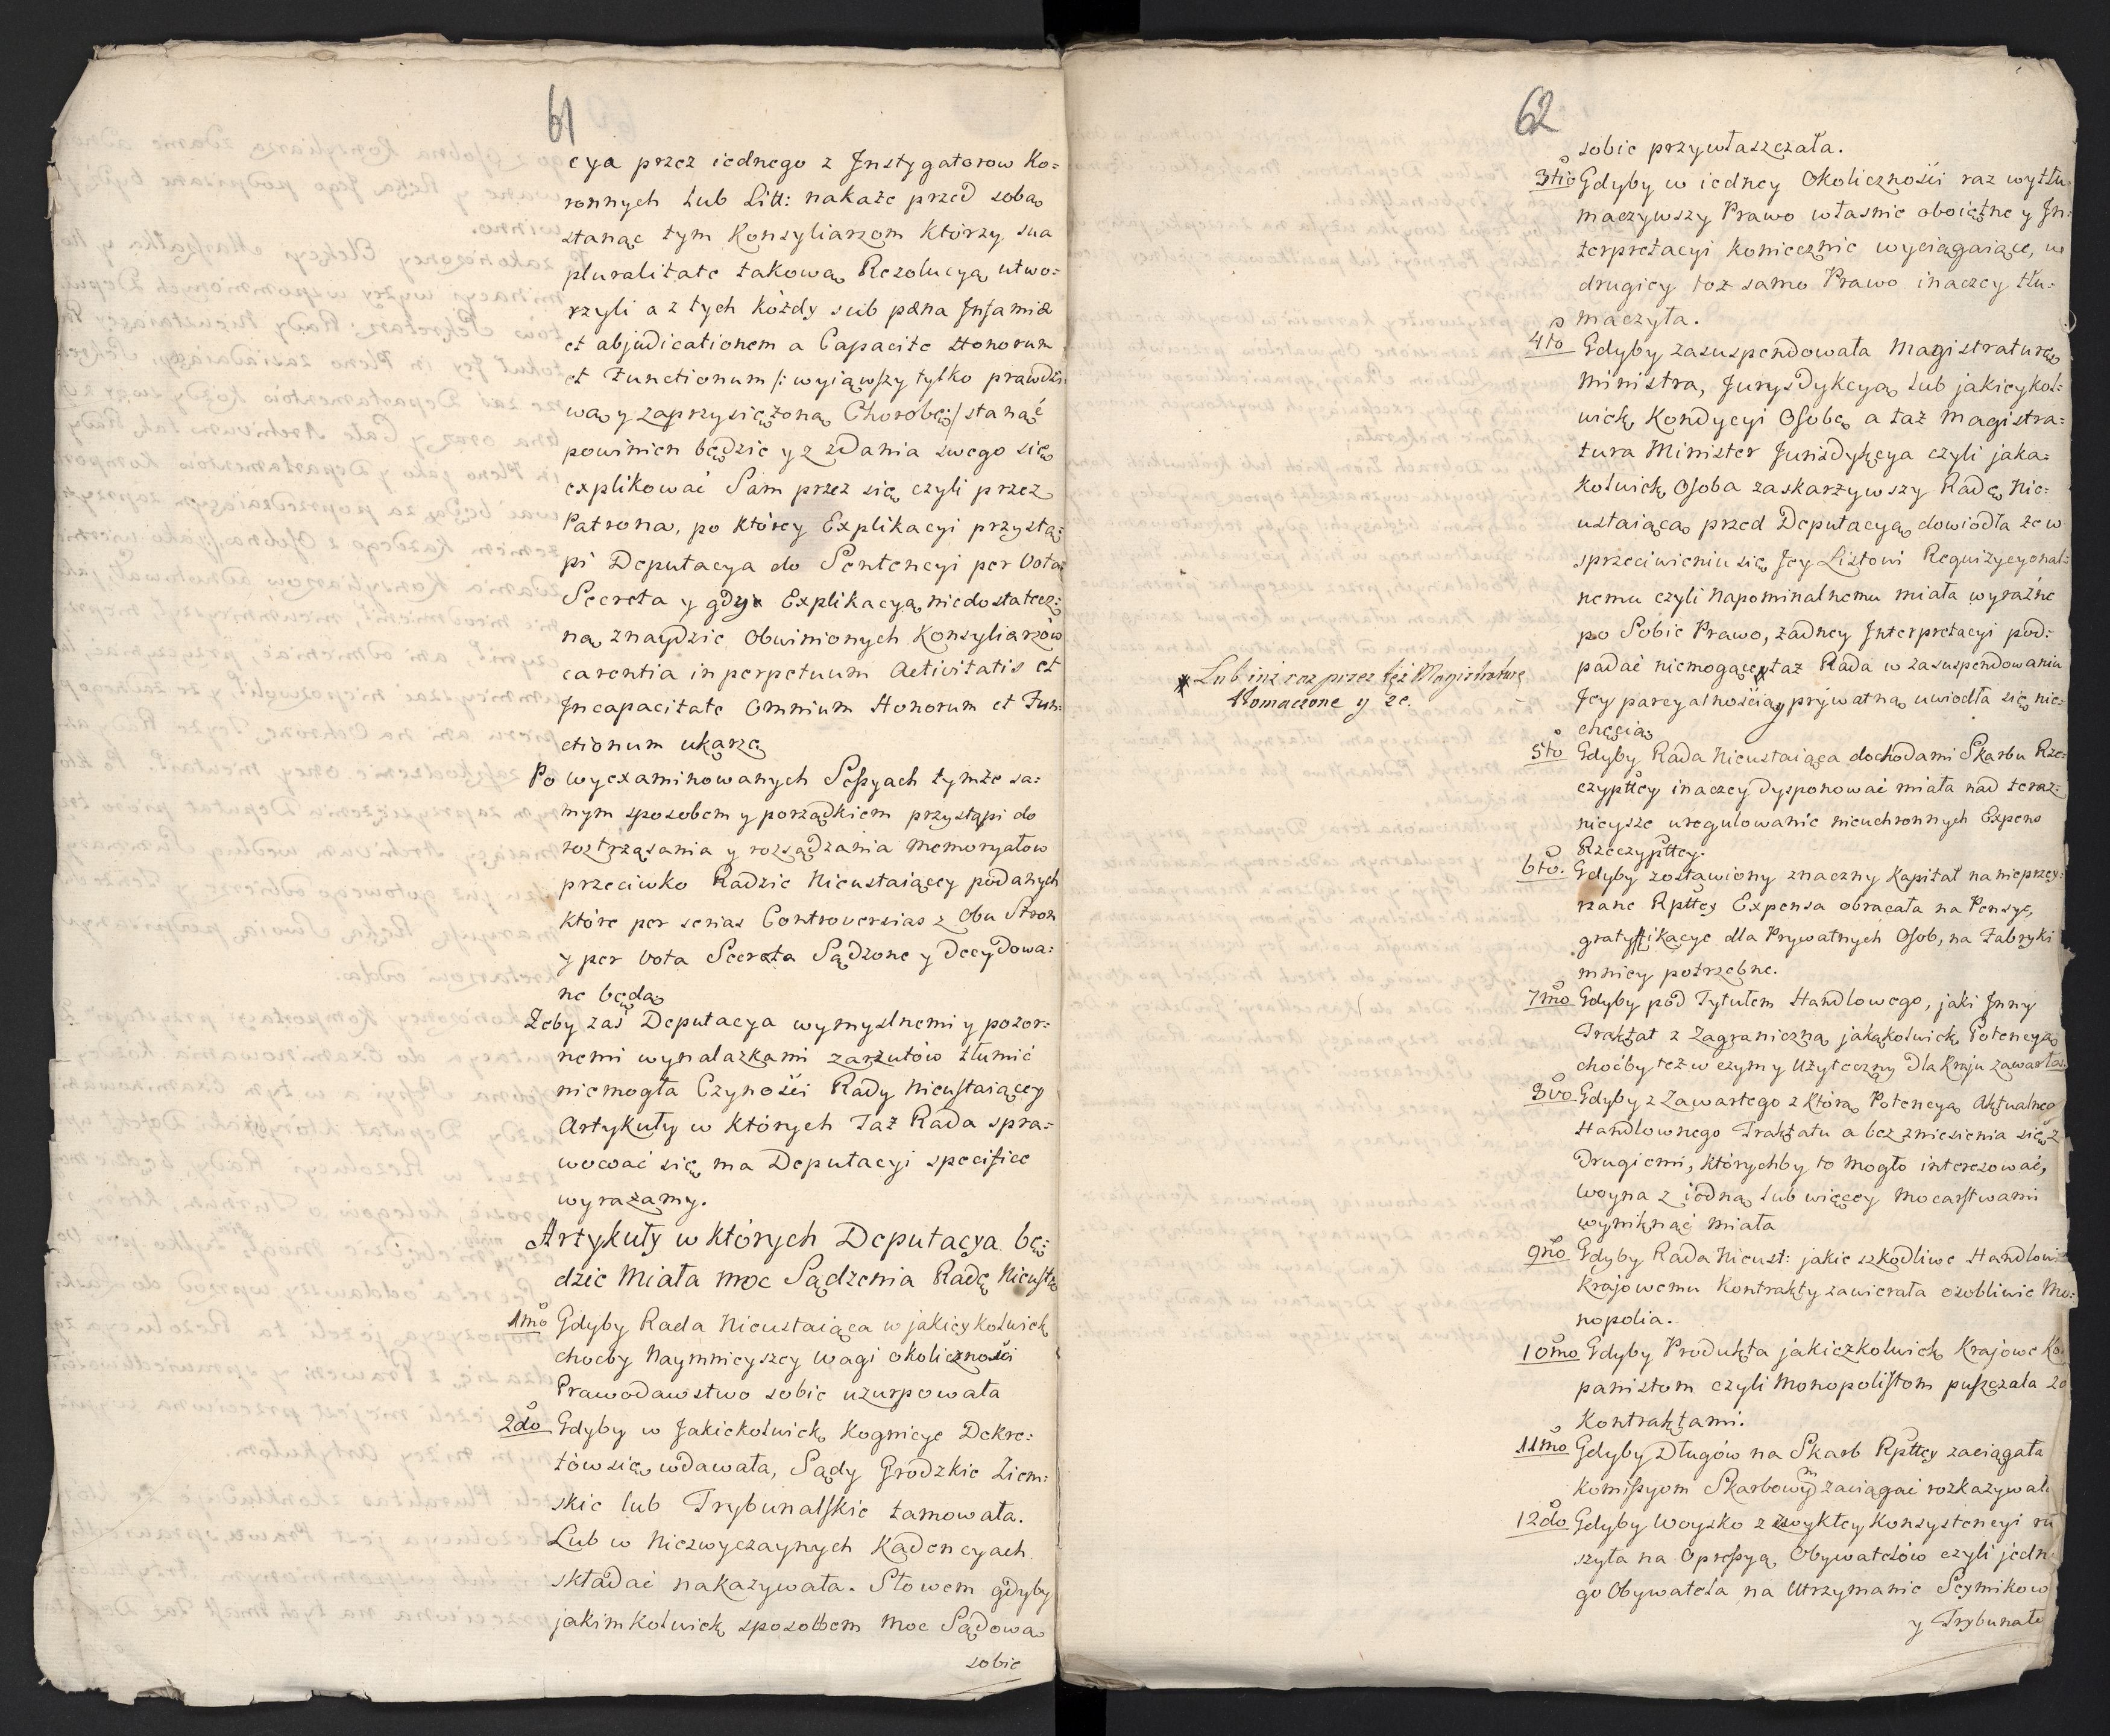 61
cya przez iednego z Jnstygatorow Ko=
ronnych Lub Litt: nakaże przed sobą
stanąc tym Konsyliarzom Którzy sua
pluralitate takową Rezolucyą utwo=
rzyli a z tych kóżdy sub pæna Jnfamiæ
et abjudicationem a Capacite Honorum
et Functionum /: wyiąwszy tylko prawdzi=
wą y zaprzysiężoną Chorobę :/ stanąć
powinien będzie y z zdania swego się
explikować Sam przez się czyli przez
Patrona, po którey Explikacyi przystą=
pi Deputacya do Sentencyi per Vota
Secreta y gdy Explikacyą niedostatecz=
ną znaydzie Obwinionych Konsyliarzów
carentia in perpetuum Activitatis et
Jncapacitate Omnium Honorum et Fun=
ctionum ukarze
Po wyexaminowanych Sessyach tymże sa=
mym sposobem y porządkiem przystąpi do
roztrząsania y rozsądzania Memoryałow
przeciwko Radzie Nieustaiącey podanych
które per serias Controversias z Obu Stron
y per Vota Secreta Sądzone y Decydowa=
ne będą
Żeby zaś Deputacya wymyslnemi y pozor=
nemi wynalazkami zarzutów tłumić
niemogła Czynośći Rady Nieustaiącey
Artykuły w których Taż Rada spra=
wować się ma Deputacyi specifice
wyrażamy.
Artykuły w których Deputacya bę=
dzie Miała moc Sądzenia Radę Nieust:
1mo Gdyby Rada Nieustaiąca w jakieykolwiek
choćby Naymnieyszey wagi okolicznośći
Prawodawstwo sobie uzurpowała
2do Gdyby w Jakiekolwiek Kognicye Dekre=
tów się wdawała, Sądy Grodzkie Ziem=
skie lub Trybunalskie tamowała.
Lub w Niezwyczaynych Kadencyach
składać nakazywała. Słowem gdyby
jakimkolwiek sposobem Moc Sądową
sobie
62
sobie przywłaszczała.
3tio Gdyby w iedney Okolicznośći raz wytłu
maczywszy Prawo własnie oboiętne y Jn=
terpretacyi koniecznie wyciągaiące, w
drugiey toż samo Prawo inaczey tłu=
maczyła.
4to Gdyby zasuspendowała Magistraturę
Ministra, Jurysdykcyą Lub jakieykol=
wiek Kondycyi Osobę a taż Magistra=
tura Minister Jurisdykcya czyli jaka=
kolwiek Osoba zaskarżywszy Radę Nie=
ustaiącą przed Deputacyą dowiodła że w
sprzeciwieniu się Jey Listowi Requizycyonal=
nemu czyli Napominalnemu miała wyraźne
po Sobie Prawo, żadney Jnterpretacyi pod=
padać niemogące * taż Rada w zasuspendowaniu
* Lub iuż raz przez tęż Magistraturę
tłomaczone y że.
Jey parcyalnością y prywatną uwiodła się nie=
chęcią
5to Gdyby Rada Nieustaiąca dochodami Skarbu Rze=
czypttey inaczey Dysponować miała nad teraz=
nieysze uregulowanie nieuchronnych Expens
Rzeczypttey.
6to. Gdyby zostawiony znaczny Kapitał na nieprzey=
rzane Rpttey Expensa obracała na Pensye,
gratyfikacye dla Prywatnych Osob, na Fabryki
mniey potrzebne.
7mo Gdyby pod Tytułem Handlowego, jaki Jnny
Traktat z Zagraniczną jakąkolwiek Potencyą
choćby też w czym y Użyteczny Dla Kraju zawarła.
8vo Gdyby z Zawartego z którą Potencyą Aktualneo
Handlownego Traktatu a bez zniesienia się z
Drugiemi, którychby to Mogło interesować,
Woyna z iedną Lub więcey Mocarstwami
wyniknąć miała
9no Gdyby Rada Nieust: jakie szkodliwe Handlowi
Krajowemu Kontrakty zawierała osobliwie Mo=
nopolia.
10mo Gdyby Produkta jakieżkolwiek Krajowe Ko
panistom czyli Monopolistom puszczała za
Kontraktami.
11mo Gdyby Długów na Skarb Rpttey zaciągała
Komissyom Skarbowym zaciągać rozkazywała
12do Gdyby Woysko z zwykłey Konsystencyi ru
szyła na Opressyą Obywatelów czyli jedne
go Obywatela na Utrzymanie Seymikow
y Trybunału